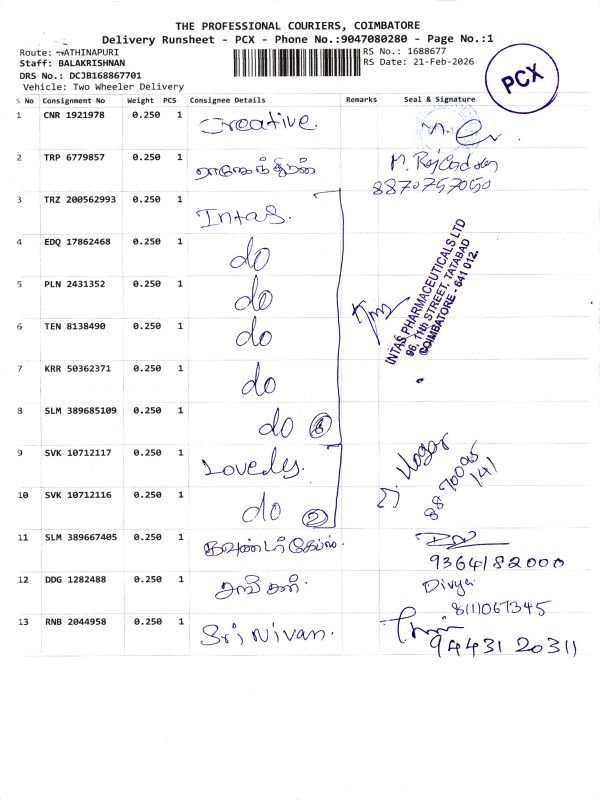 THE PROFESSIONAL COURIERS, COIMBATORE
Delivery Runsheet - PCX - Phone No.:9047080280 - Page No.:1
Route: RATHINAPURI
RS No.: 1688677
Staff: BALAKRISHNAN
RS Date: 21-Feb-2026
DRS No.: DCJB168867701
Vehicle: Two Wheeler Delivery
PCX
S No Consignment No Weight PCS Consignee Details Remarks Seal & Signature
1 CNR 1921978 0.250 1 Creative.
2 TRP 6779857 0.250 1 ராஜேந்திரன்
8870757050
3 TRZ 200562993 0.250 1 Intas.
4 EDQ 17862468 0.250 1 do
5 PLN 2431352 0.250 1 do
INTAS PHARMACEUTICALS LTD
96, 11th STREET, TATABAD
COIMBATORE - 641 012.
6 TEN 8138490 0.250 1 do
7 KRR 50362371 0.250 1 do
8 SLM 389685109 0.250 1 do 6
9 SVK 10712117 0.250 1 Lovedly.
10 SVK 10712116 0.250 1 do 2
88 70095
141
11 SLM 389667405 0.250 1
9364182000
12 DDG 1282488 0.250 1
Divya
8111067345
13 RNB 2044958 0.250 1 Srinivan.
94431 20311